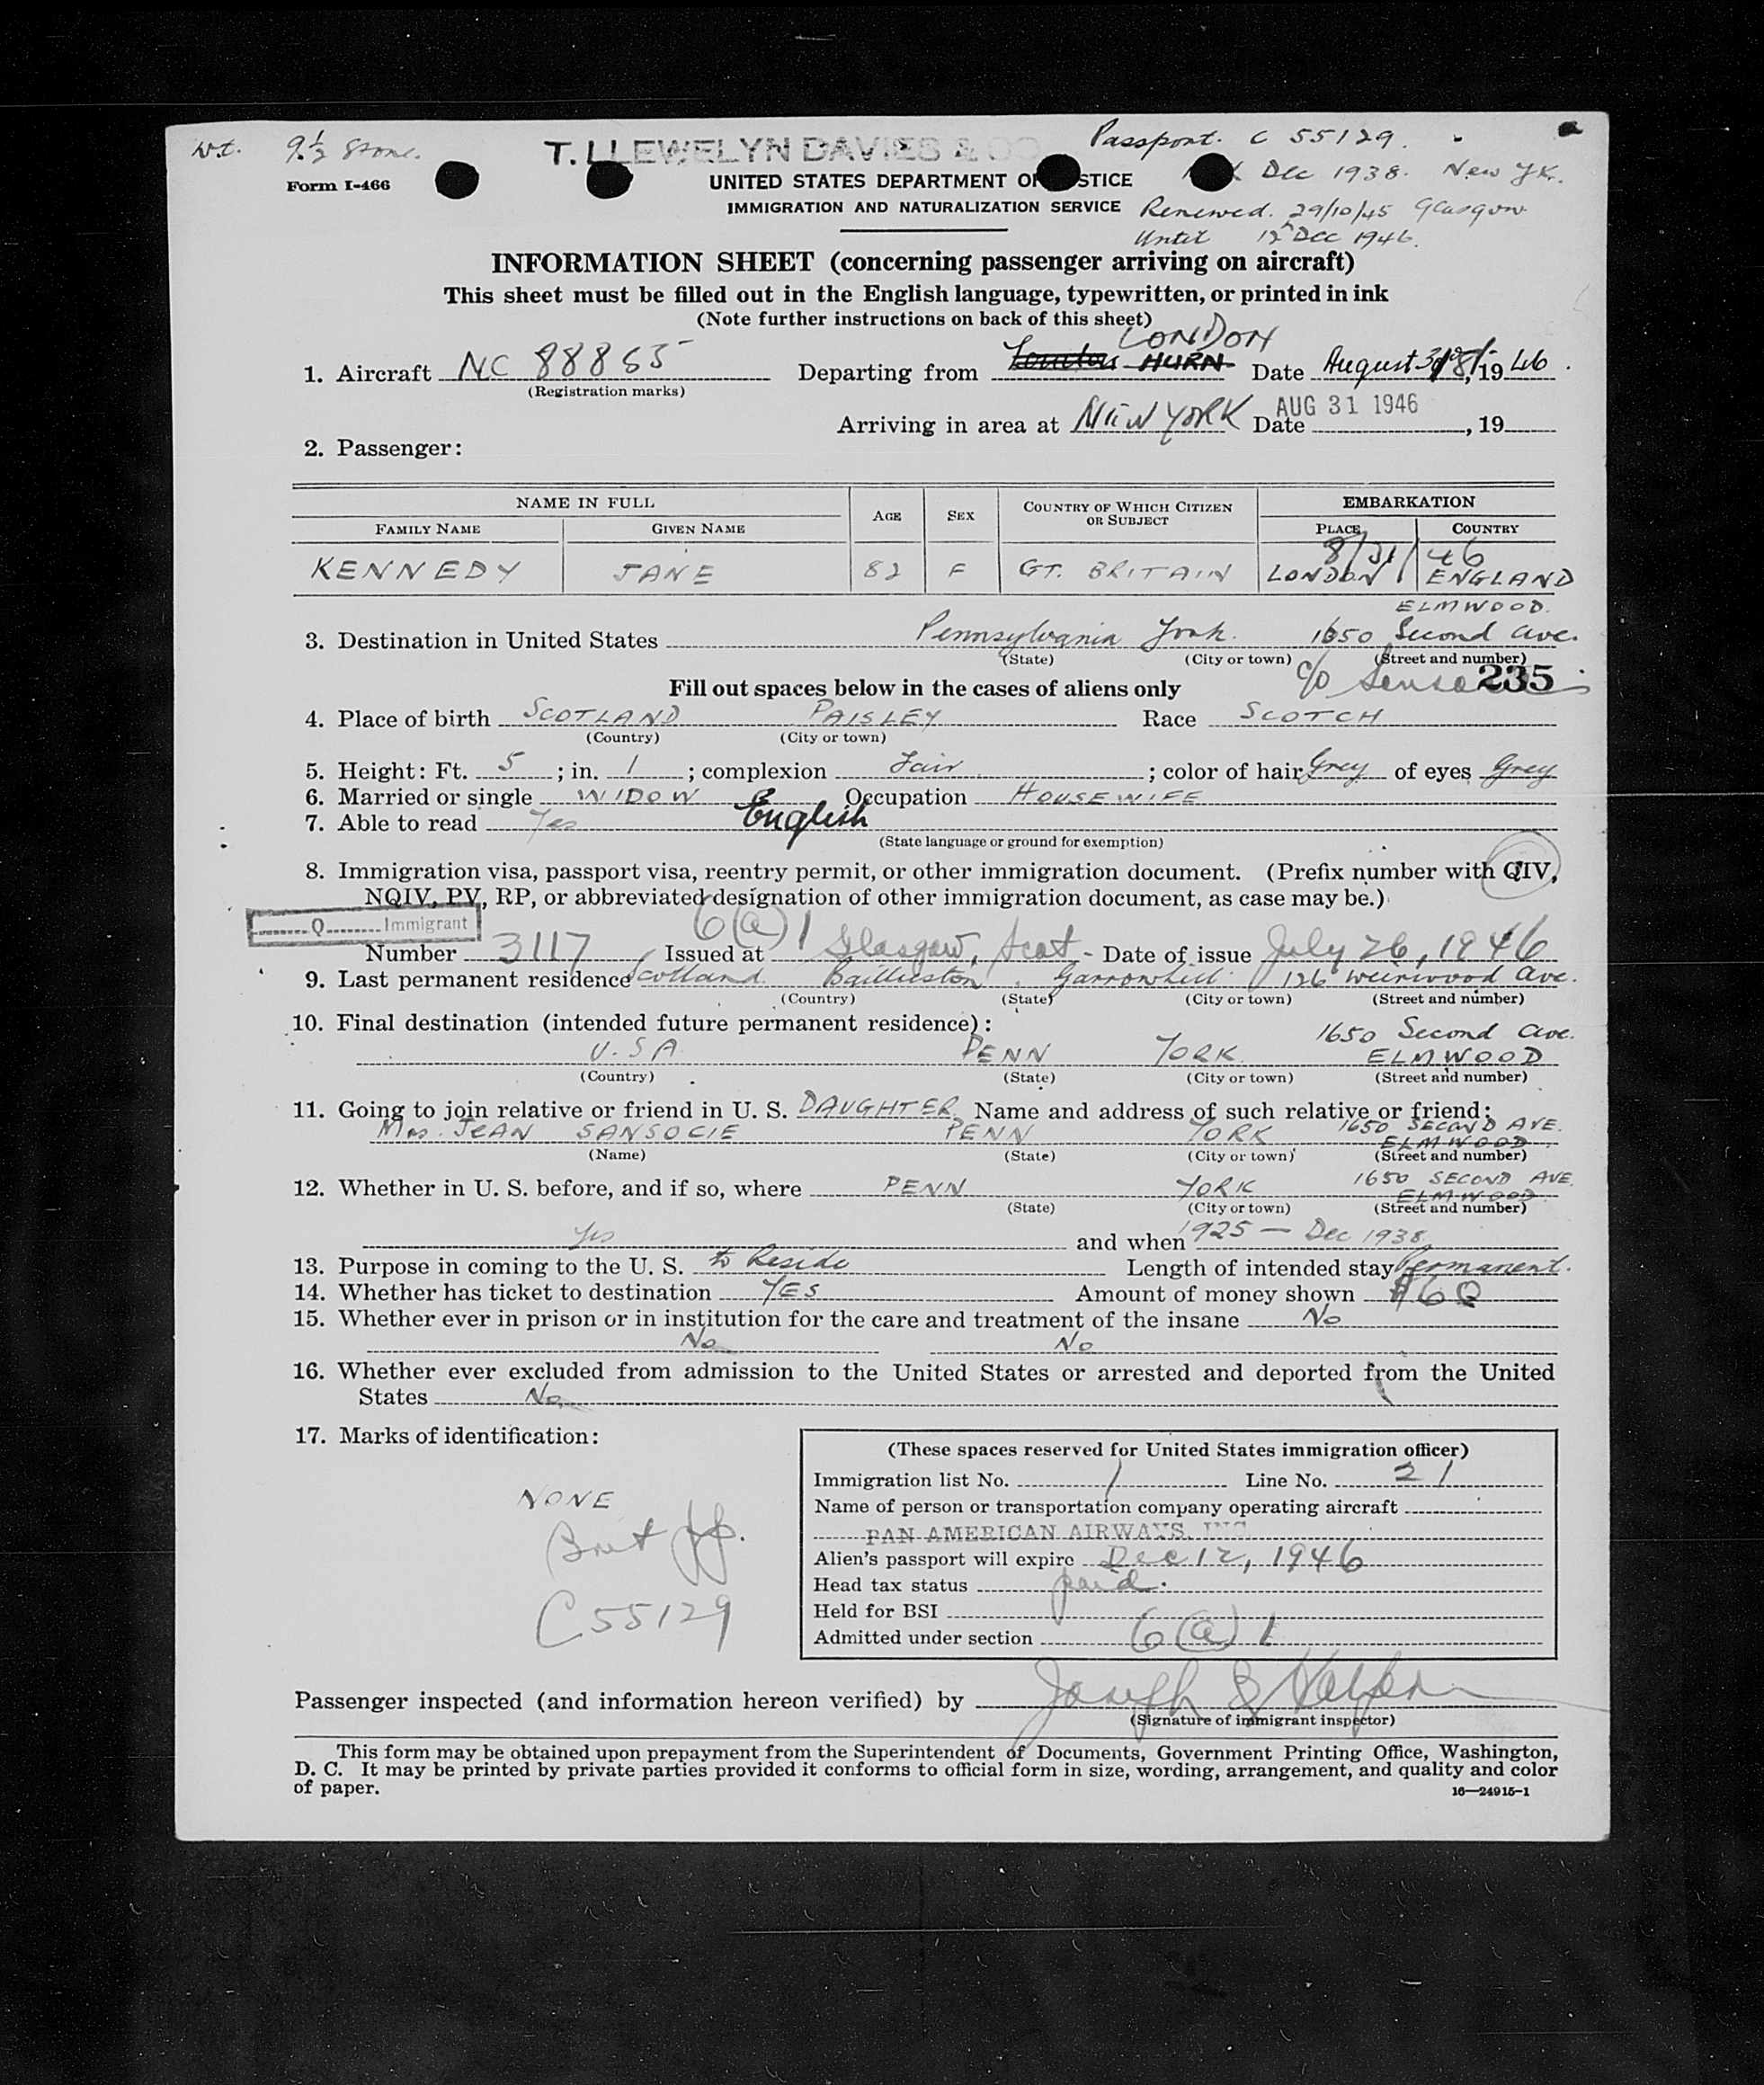 Wt. 9½ Stone.
T. LLEWELYN DAVIES & CO
Passport. C 55129.
Form I-466
UNITED STATES DEPARTMENT OF JUSTICE
Dec 1938. New Yk.
IMMIGRATION AND NATURALIZATION SERVICE
Renewed. 29/10/45 Glasgow
Until 12 Dec 1946.
INFORMATION SHEET (concerning passenger arriving on aircraft)
This sheet must be filled out in the English language, typewritten, or printed in ink
(Note further instructions on back of this sheet)
LONDON
1. Aircraft NC 88865 Departing from London HURN Date August 31, 1946.
(Registration marks)
Arriving in area at NEW YORK Date AUG 31 1946, 19
2. Passenger:
NAME IN FULL AGE SEX COUNTRY OF WHICH CITIZEN OR SUBJECT EMBARKATION
FAMILY NAME GIVEN NAME PLACE COUNTRY
8/31/46
KENNEDY JANE 82 F GT. BRITAIN LONDON ENGLAND
ELMWOOD.
3. Destination in United States Pennsylvania York. 1650 Second Ave.
(State) (City or town) (Street and number)
c/o 235
Fill out spaces below in the cases of aliens only
4. Place of birth SCOTLAND PAISLEY Race SCOTCH
(Country) (City or town)
5. Height: Ft. 5; in. 1; complexion Fair; color of hair Grey of eyes Grey
6. Married or single WIDOW Occupation HOUSEWIFE
7. Able to read Yes English
(State language or ground for exemption)
8. Immigration visa, passport visa, reentry permit, or other immigration document. (Prefix number with QIV,
NQIV, PV, RP, or abbreviated designation of other immigration document, as case may be.)
Q Immigrant 6(a)1
Number 3117 Issued at Glasgow, Scot - Date of issue July 26, 1946
9. Last permanent residence Scotland. Baillieston. Garrowhill 126 Weirwood Ave.
(Country) (State) (City or town) (Street and number)
10. Final destination (intended future permanent residence):
1650 Second Ave.
U.S.A PENN YORK. ELMWOOD
(Country) (State) (City or town) (Street and number)
11. Going to join relative or friend in U. S. DAUGHTER. Name and address of such relative or friend:
Mrs. JEAN SANSOCIE PENN YORK 1650 SECOND AVE.
ELMWOOD.
(Name) (State) (City or town) (Street and number)
12. Whether in U. S. before, and if so, where PENN YORK 1650 SECOND AVE.
ELMWOOD
(State) (City or town) (Street and number)
Yes and when 1925 — Dec 1938
13. Purpose in coming to the U. S. to Reside Length of intended stay Permanent.
14. Whether has ticket to destination YES Amount of money shown $60
15. Whether ever in prison or in institution for the care and treatment of the insane No
No No
16. Whether ever excluded from admission to the United States or arrested and deported from the United
States No
17. Marks of identification:
NONE
Brit pp.
C55129
(These spaces reserved for United States immigration officer)
Immigration list No. 1 Line No. 21
Name of person or transportation company operating aircraft
PAN AMERICAN AIRWAYS, INC
Alien's passport will expire Dec 12, 1946
Head tax status paid.
Held for BSI
Admitted under section 6(a)1
Passenger inspected (and information hereon verified) by Joseph
(Signature of immigrant inspector)
This form may be obtained upon prepayment from the Superintendent of Documents, Government Printing Office, Washington,
D. C. It may be printed by private parties provided it conforms to official form in size, wording, arrangement, and quality and color
of paper.
16—24915-1